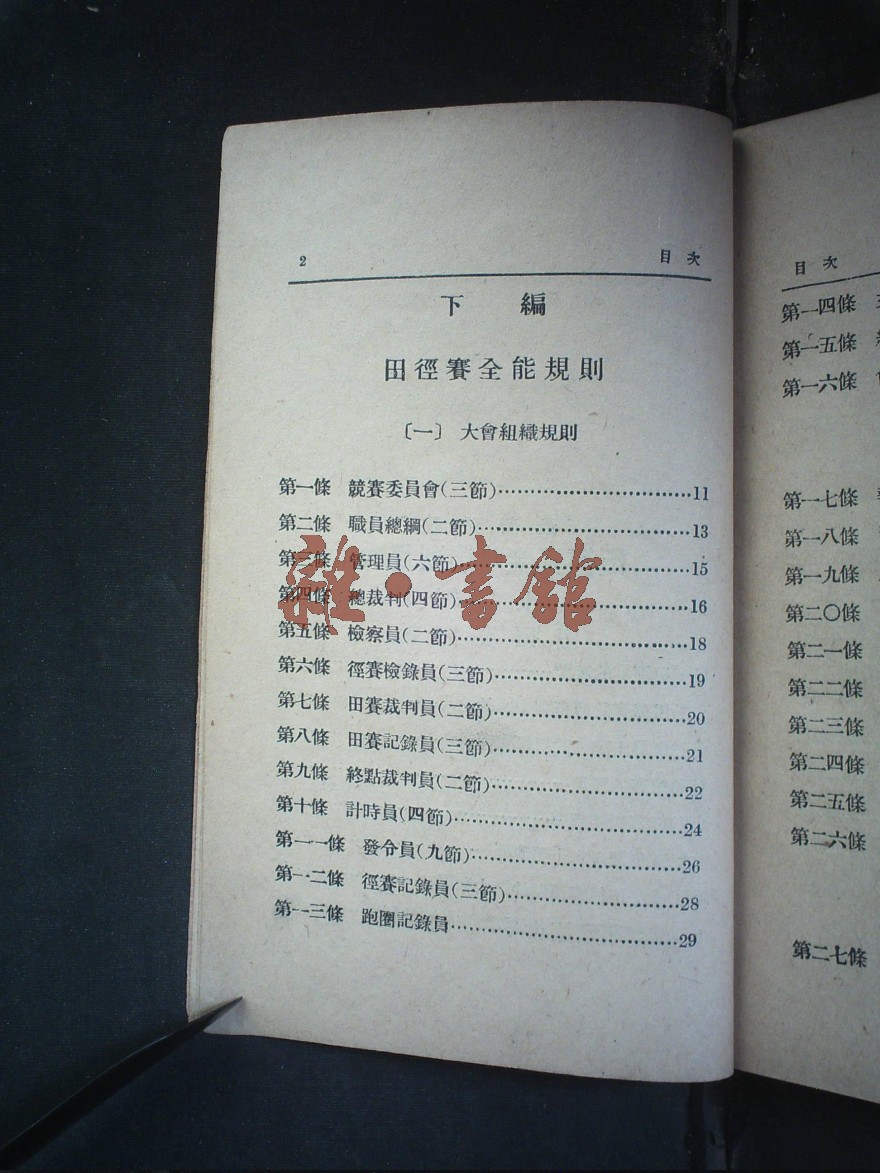 2 目次
下編
田徑賽全能規則
〔一〕 大會組織規則
第一條 競賽委員會(三節)……………………………11
第二條 職員總綱(二節)……………………………13
第三條 管理員(六節)……………………………15
第四條 總裁判(四節)……………………………16
第五條 檢察員(二節)……………………………18
第六條 徑賽檢錄員(三節)……………………………19
第七條 田賽裁判員(二節)……………………………20
第八條 田賽記錄員(三節)……………………………21
第九條 終點裁判員(二節)……………………………22
第十條 計時員(四節)……………………………24
第一一條 發令員(九節)……………………………26
第一二條 徑賽記錄員(三節)……………………………28
第一三條 跑圈記錄員……………………………29
雜·書館
目次
第一四條
第一五條
第一六條
第一七條
第一八條
第一九條
第二〇條
第二一條
第二二條
第二三條
第二四條
第二五條
第二六條
第二七條